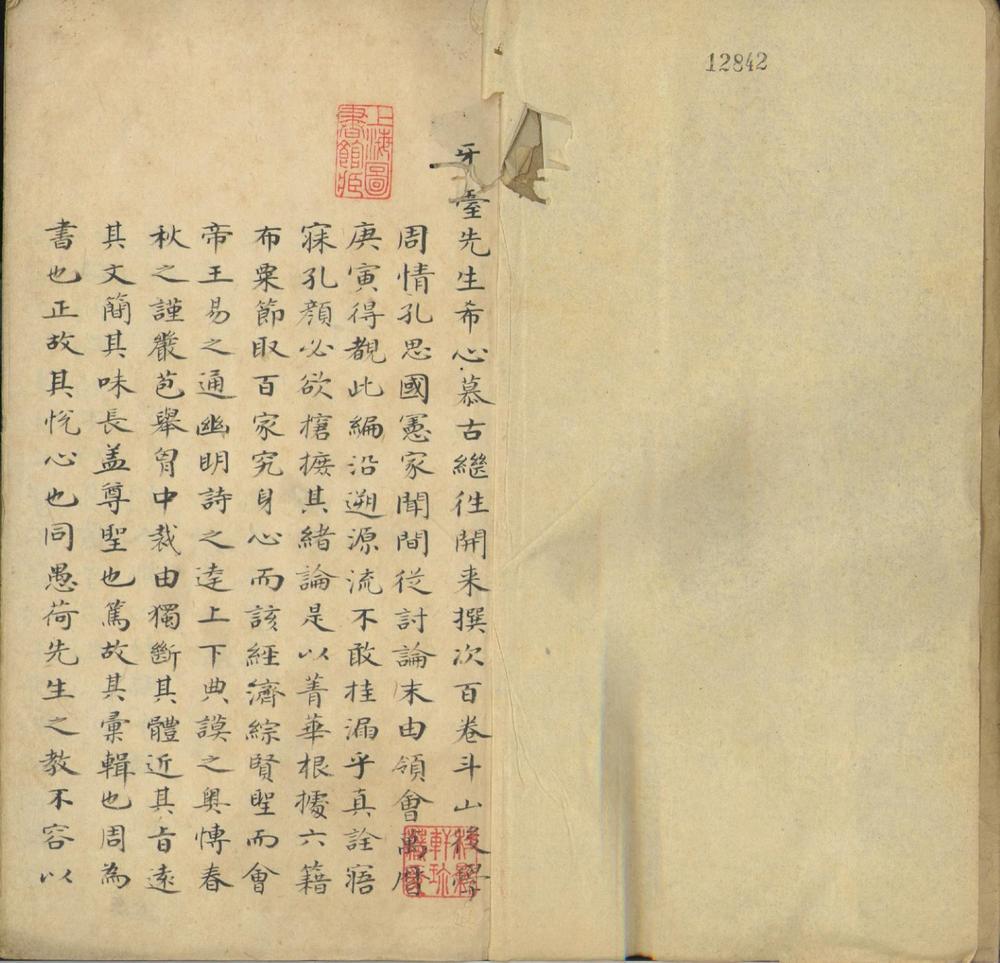 12842
上海圖書館藏
牙臺先生希心慕古繼徃開来撰次百卷斗山後學
周情孔思國憲家聞間從討論末由領會萬曆
庚寅得覩此編沿遡源流不敢挂漏乎真詮寤
寐孔顏必欲樁摭其緒論是以菁華根據六籍
布粟節取百家究身心而該經濟綜賢聖而會
帝王易之通幽明詩之逹上下典謨之奥愽春
秋之謹嚴苞舉胷中裁由獨斷其體近其旨逺
其文簡其味長盖尊聖也篤故其彙輯也周為
書也正故其恱心也同愚荷先生之教不容以